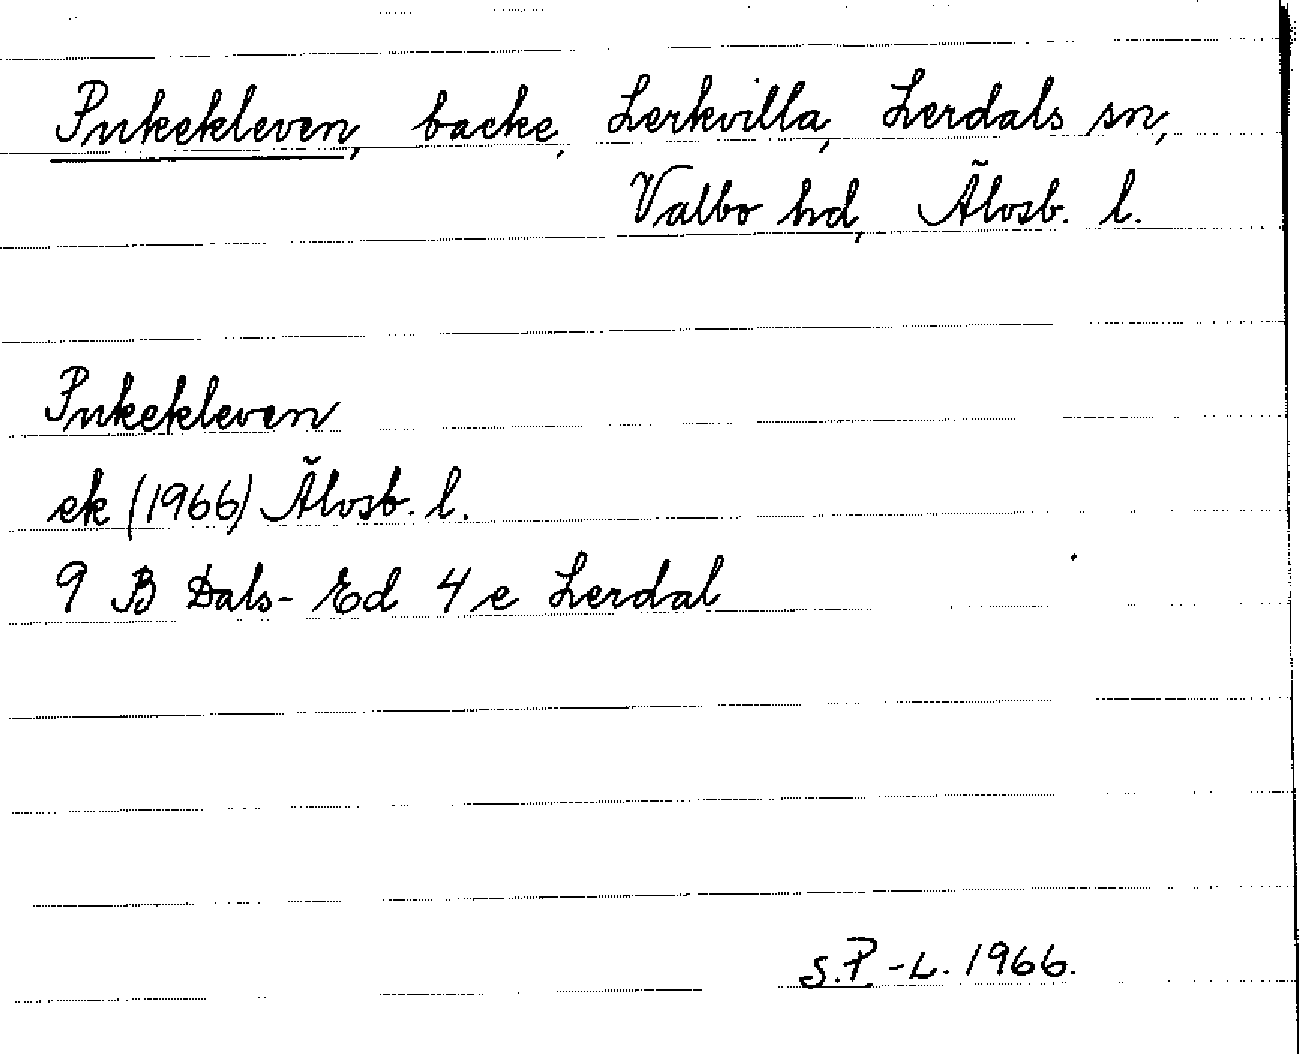 Pukekleven, backe, Lerkvilla, Lerdals sn,
Valbo hd, Älvsb. l.
Pukekleven
ek (1966) Älvsb. l.
9 B Dals-Ed 4 e Lerdal
S.P.-L. 1966.